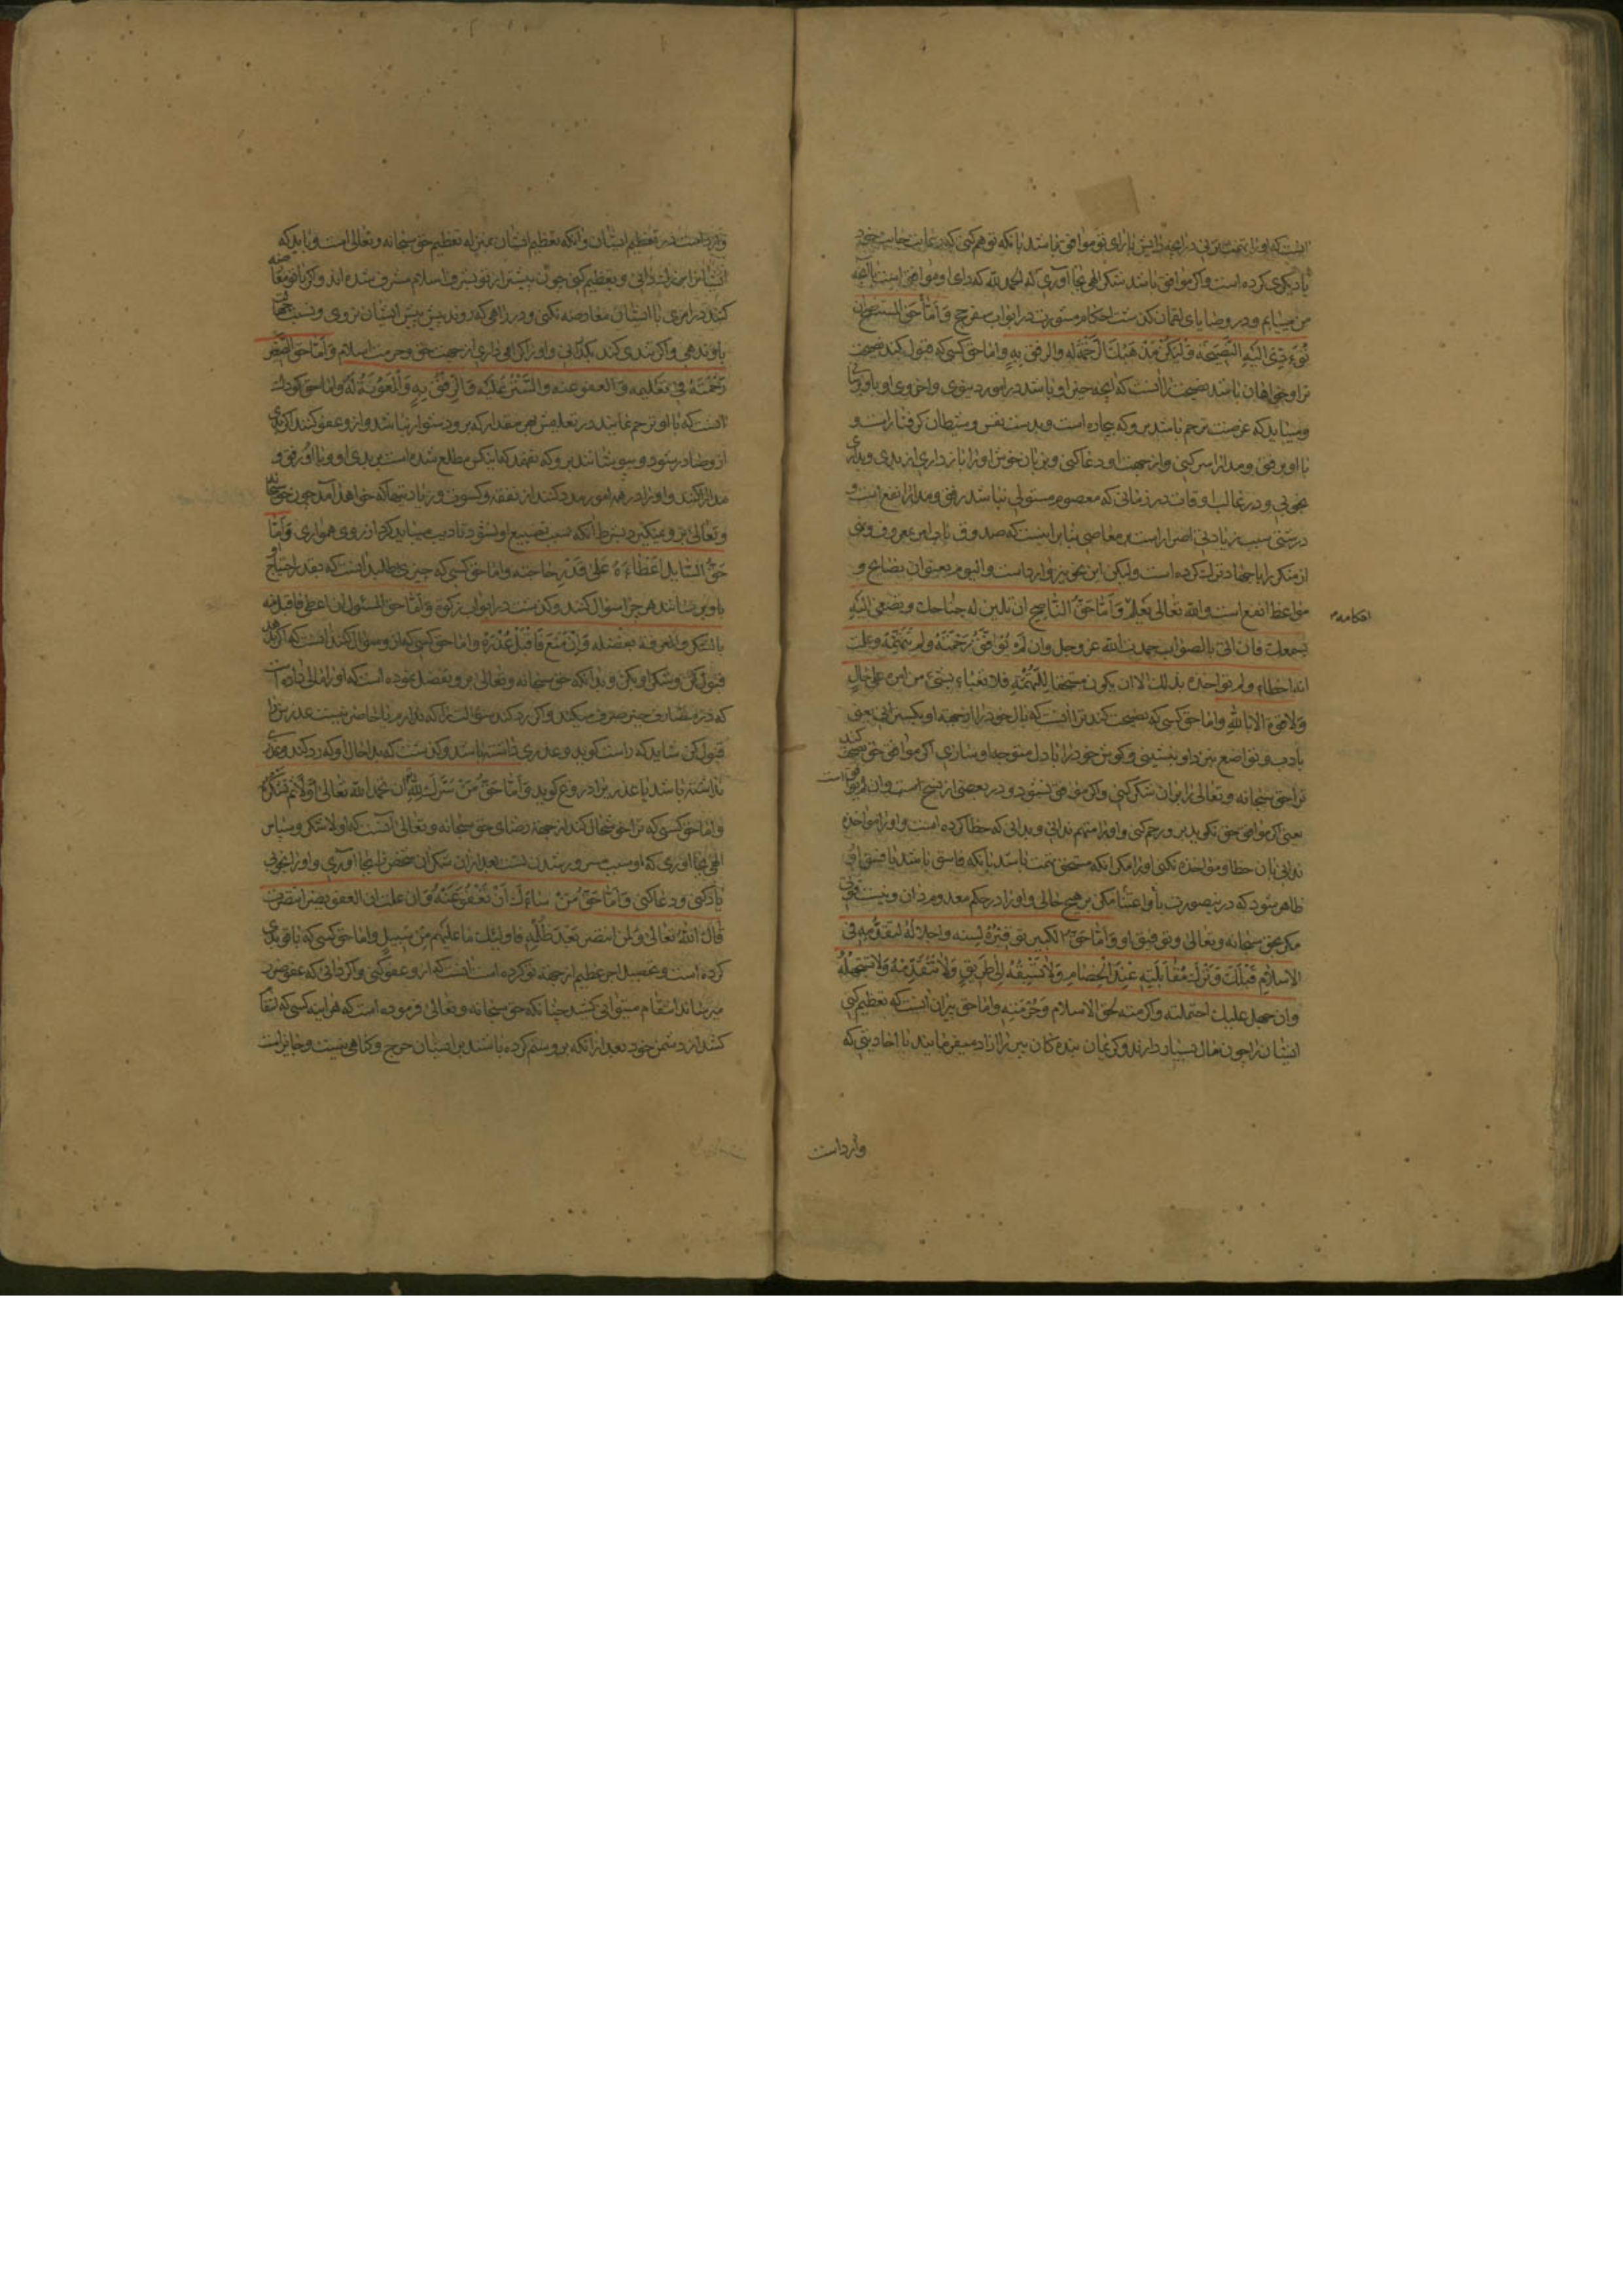 انست که او را تهمت نزنی در انچه رایش با رای تو موافق نباشد بانکه توهم کنی که رعایت جانب خود
یا دیگری کرده است و اگر موافق باشد شکر الهی بجا آوری که الحمد لله که رای او موافق است با آنچه
من مییابم و در وصایای لقمان گذشت احکام مشورت در ابواب سفر حج و أمّا حقّ المستنصح ان
تؤدّی الیه النّصیحة و لیکن مذهبک الرّحمة له و الرفق به و اما حق کسی که قبول کند نصیحت
ترا و خواهان باشد نصیحت را انست که انچه خیر او باشد در امور دنیوی و اخروی او باو برسانی
و میباید که غرضت ترحم باشد برو که بیچاره است و بدست نفس و شیطان گرفتار است و
با او برفق و مدارا سر کنی و از جهت او دعا کنی و بزبان خوش او را بازداری از بدی و بداری
بخوبی و در غالب اوقات در زمانی که معصوم مستولی نباشد رفق و مدارا انفع است و
درشتی سبب زیادتی اصرار است بر معاصی بنابر اینست که صدوق باب امر بمعروف و نهی
از منکر را با جهاد ترک کرده است و لیکن این بخوبتر وارد است و الیوم بعنوان نصایح و
مواعظ انفع است و الله تعالی یعلم و أمّا حقّ النّاصح ان تلین له جناحک و تصغی الیه
بسمعک فان اتی بالصواب حمدت الله عز و جل و ان لم یوافق رحمته و لم تتّهمه و علمت
انه اخطاء و لم تؤاخذه بذلک الا ان یکون مستحقا للتّهمة فلا تعباء بشیء من امره علی حال
و لا قوة الا بالله و اما حق کسی که نصیحت کند ترا انست که بال خود را از جهة او بگسترانی یعنی
بادب و تواضع نزد او بنشینی و گوش خود را با دل متوجه او سازی اگر موافق حق نصیحت کند
ترا حق سبحانه و تعالی را بران شکر کنی و اگر موافق نشود و در بعضی از نسخ است و ان لم یوافق است
یعنی اگر موافق حق نگوید برو رحم کنی و او را متهم ندانی و بدانی که خطا کرده است و او را مؤاخذه
ندانی بان خطا و مؤاخذه نکنی او را مگر انکه مستحق تهمت باشد بانکه فاسق باشد یا فسق او
ظاهر شود که درینصورت باو اعتنا مکن بر هیچ حالی و او را در حکم معدوم دان و نیست قوتی
مگر بحق سبحانه و تعالی و توفیق او و أمّا حقّ الکبیر توقیره لسنه و اجلاله لتقدّمه فی
الاسلام قبلک و ترک مقابلته عند الخصام و لا تسبقه الی طریق و لا تتقدّمه و لا تستجهله
و ان جهل علیک احتملته و اکرمته لحق الاسلام و حرمته و اما حق پیران انست که تعظیم کنی
ایشان را چون سال بسیار دارند و کریمان بنده کان پیر را ازاد میفرمایند با احادیثی که
وارد است
افکامه
وارد است در تعظیم ایشان و انکه تعظیم ایشان بمنزله تعظیم حق سبحانه و تعالی است و باید که
ایشانرا بزرگ دانی و تعظیم کنی چون پیشتر از تو بشرف اسلام مشرف شده اند و اگر با تو معارضه
کنند در امری با ایشان معارضه نکنی و در راهی که روند پیش پیش ایشان نروی و نسبت جهالت
باو ندهی و اگر تندی کند بگذرانی و او را گرامی داری از جهت حق و حرمت اسلام و أمّا حق الصّغیر
رحمته فی تعلیمه و العفو عنه و السّتر علیه و الرّفق به و المعونة له و اما حق کودک
انست که باو ترحم نمایند در تعلیمش بهر مقدار که برو دشوار نباشد و ازو عفو کنند اگر بدی
ازو صادر شود و بپوشانند برو که نفهمد که اینکس مطلع شده است بر بدی او و با او رفق و
مدارا کنند و او را در همه امور مدد کنند از نفقه و کسوت و زیادتیها که خواهد آمد چون حق سبحانه
و تعالی برو نمیگیرد بشرط انکه سبب تضییع او نشود تادیب میباید کرد از روی همواری و أمّا
حقّ السّایل اعطاءه علی قدر حاجته و اما حق کسی که چیزی طلبد انست که بقدر احتیاج او
باو برسانند هر چه را سؤال کنند و گذشت در ابواب زکوة و أمّا حق المسئول ان اعطی فاقبل منه
بالشکر و المعرفة بفضله و إن منع فاقبل عذره و اما حق کسی که ازو سؤال کنند انست که اگر بدهد
قبول کن و شکر او بکن و بدانکه حق سبحانه و تعالی برو تفضل نموده است که او را مالی داده است
که در مصارف خیر صرف میکند و اگر رد کند سؤالت را که ندارم یا حاضر نیست عذرش را
قبول کن شاید که راست گوید و عذری داشته باشد و گذشت که بد احال او که رد کند و عذری
نداشته باشد یا عذر برا دروغ گوید و أمّا حقّ من سرّک لله ان تحمد الله تعالی اوّلا ثم تشکره
و اما حق کسی که ترا خوشحال کند از جهة رضای حق سبحانه و تعالی انست که اولا شکر و سپاس
الهی بجا اوری که او سبب مسرور شدن تست بعد از ان شکر ان شخص را بجا آوری و او را بخوبی
یاد کنی و دعا کنی و أمّا حقّ من ساءک أن تعفو عنه و ان علمت ان العفو یضر انتصرت
قال الله تعالی و لمن انتصر بعد ظلمه فاولئک ما علیهم من سبیل و اما حق کسی که با تو بدی
کرده است و تحصیل اجر عظیم از جهة تو کرده است انست که ازو عفو کنی و اگر دانی که عفو ضرر
میرساند انتقام میتوانی کشید چنانکه حق سبحانه و تعالی فرموده است که هر اینه کسی که انتقام
کشد از دشمن خود بعد از انکه برو ستم کرده باشند بر ایشان حرج و گناهی نیست و جایز است